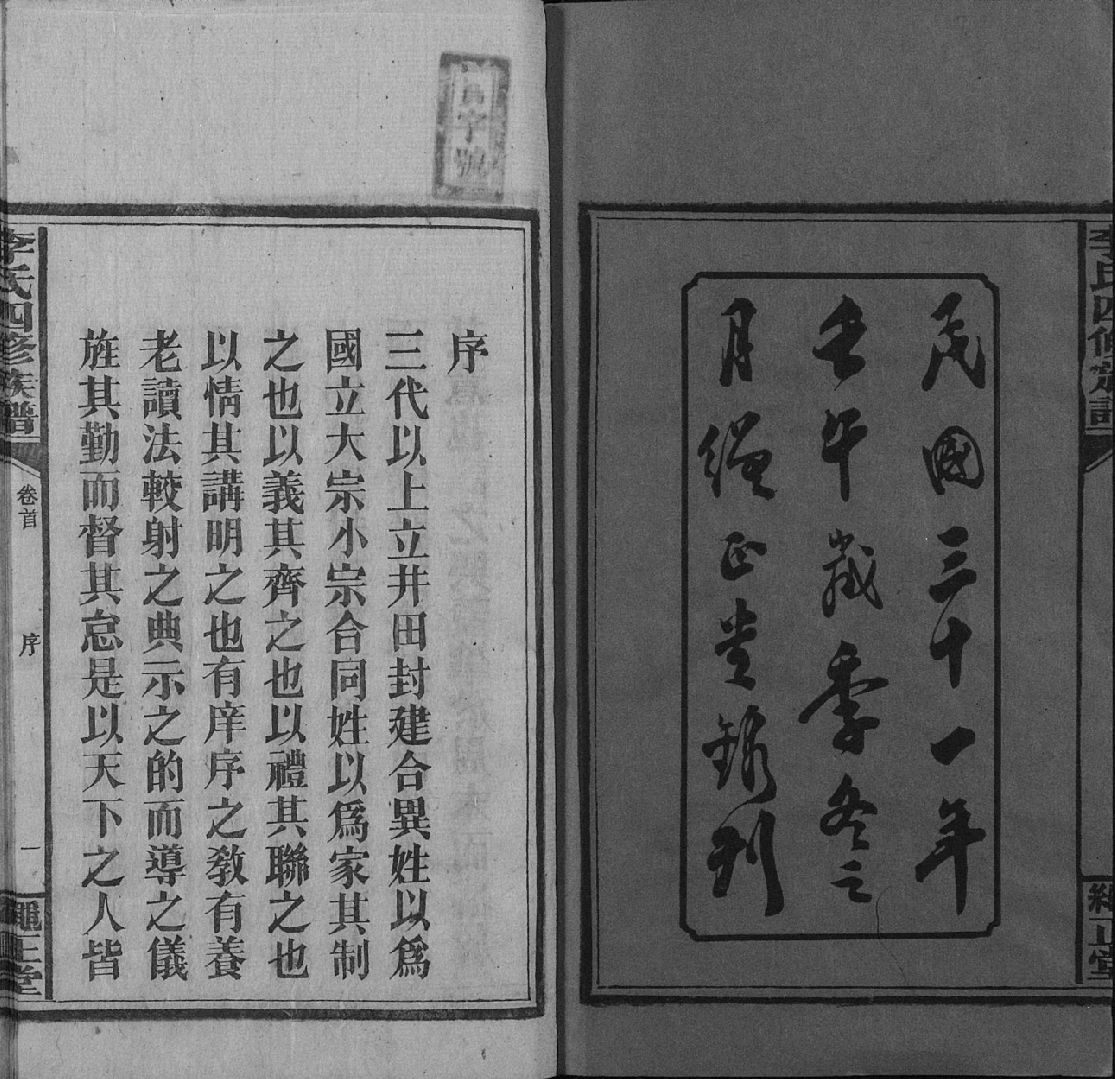 民國三十一年
壬午歲季冬之
月繩正堂鐫刊
李氏四修族譜
繩正堂
字號
序
三代以上立井田封建合異姓以爲
國立大宗小宗合同姓以爲家其制
之也以義其齊之也以禮其聯之也
以情其講明之也有庠序之教有養
老讀法較射之典示之的而導之儀
旌其勤而督其怠是以天下之人皆
李氏四修族譜
卷首
序
一
繩正堂